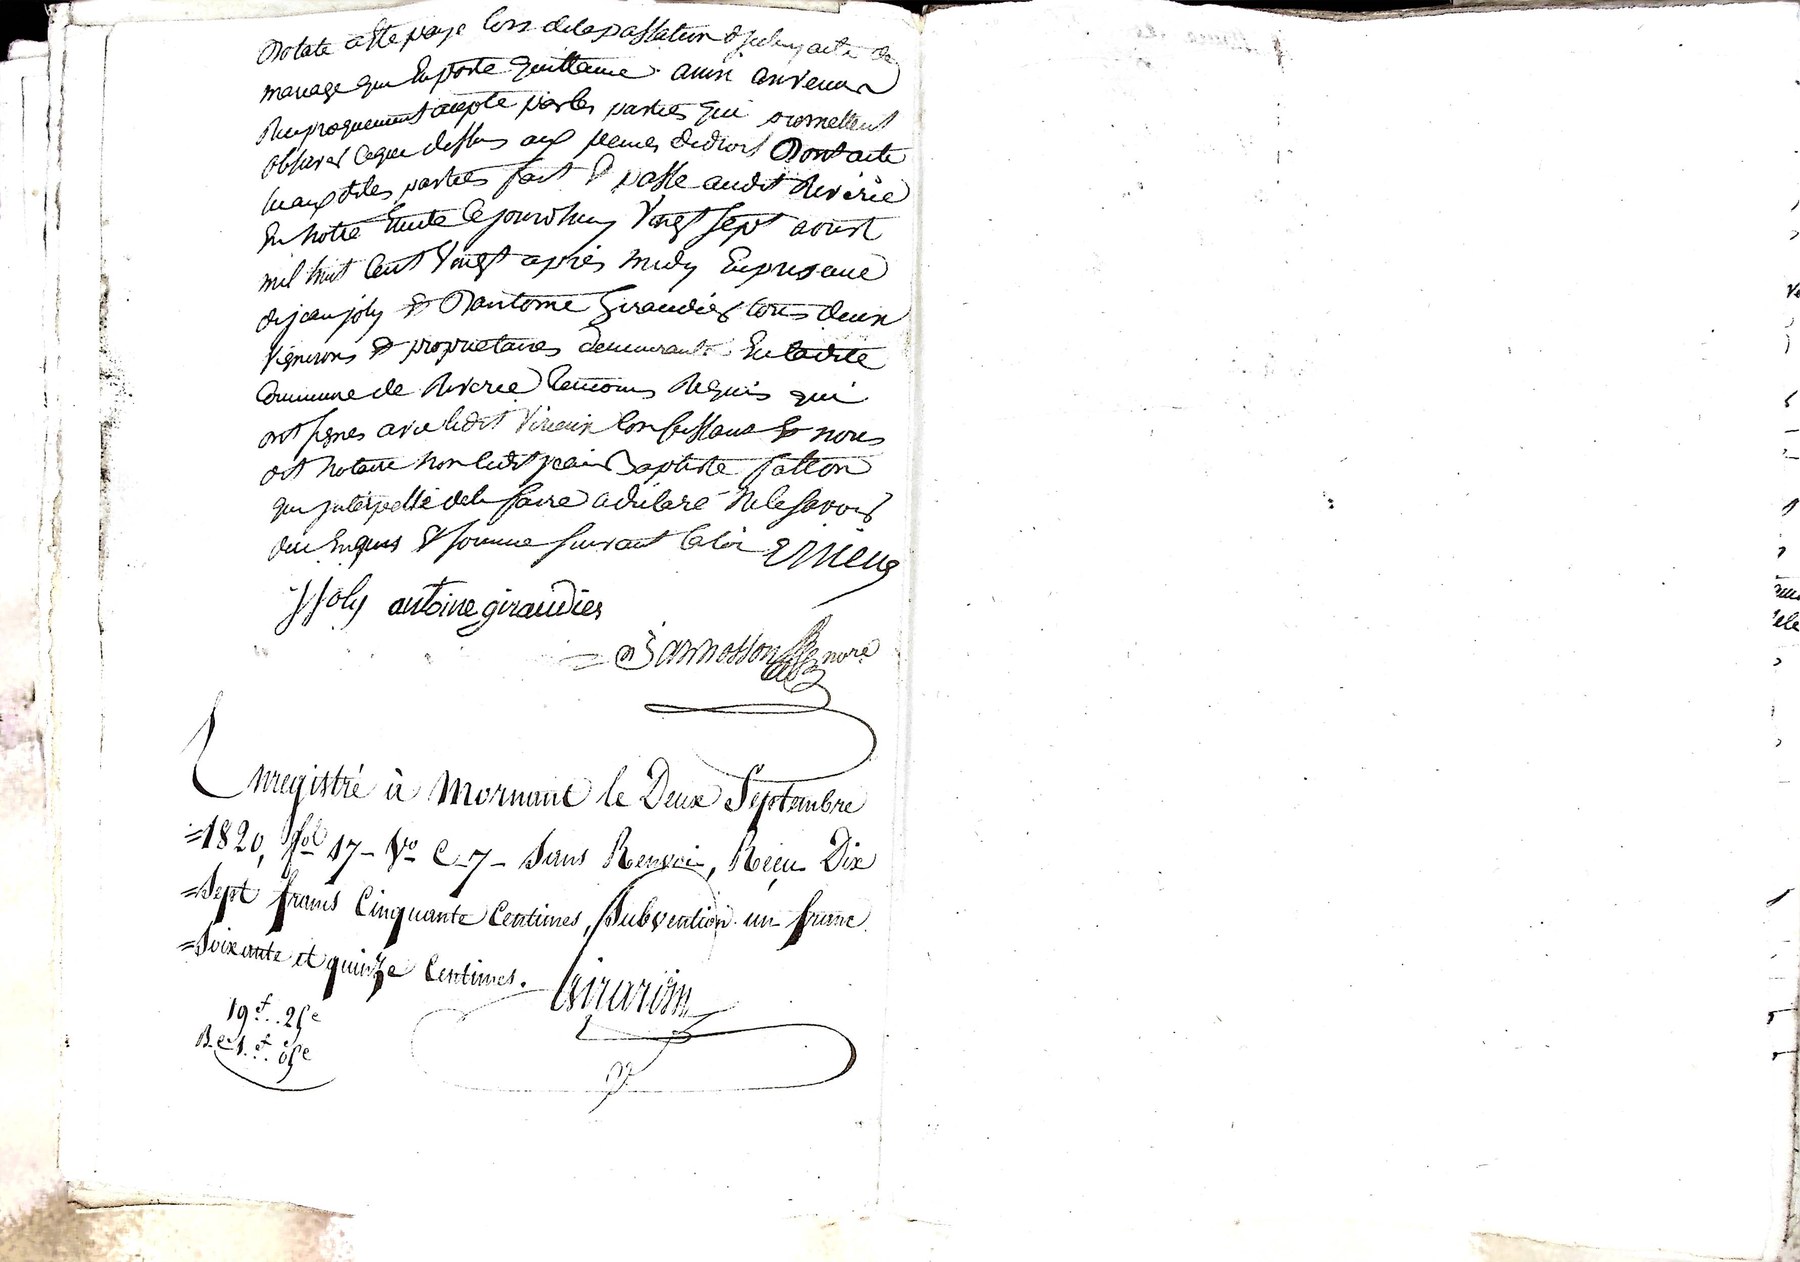 Dotale a été payé lors de la passation dudit acte de
mariage qui en porte quittance ainsi convenu
réciproquement accepté par les parties qui promettent
observer ce que dessus aux peines de droit Dont acte
auxdites parties fait & passé audit Riverie
En notre Etude ce jourdhuy vingt sept aoust
mil huit cent vingt après midy En presence
de jean joly & D'antoine Giraudier tous deux
vignerons & proprietaires demeurants En ladite
Commune de Riverie temoins Requis qui
ont signés avec ledit Virieux confessant & nous
dit notaire non ledit jean Baptiste fatton
qui interpellé de le faire a déclaré ne le savoir
de ce Enquis & sommé suivant la loi Virieux
JJoly antoine giraudier
Jarnosson nore
Enregistré à Mornant le Deux Septembre
=1820, fol 17- Vo C-7- Sans Renvoi, Reçu Dix
=Sept francs Cinquante Centimes, Subvention un franc
=Soixante et quinze Centimes. Girardon
19 f. 25 c
1 f. 05 c